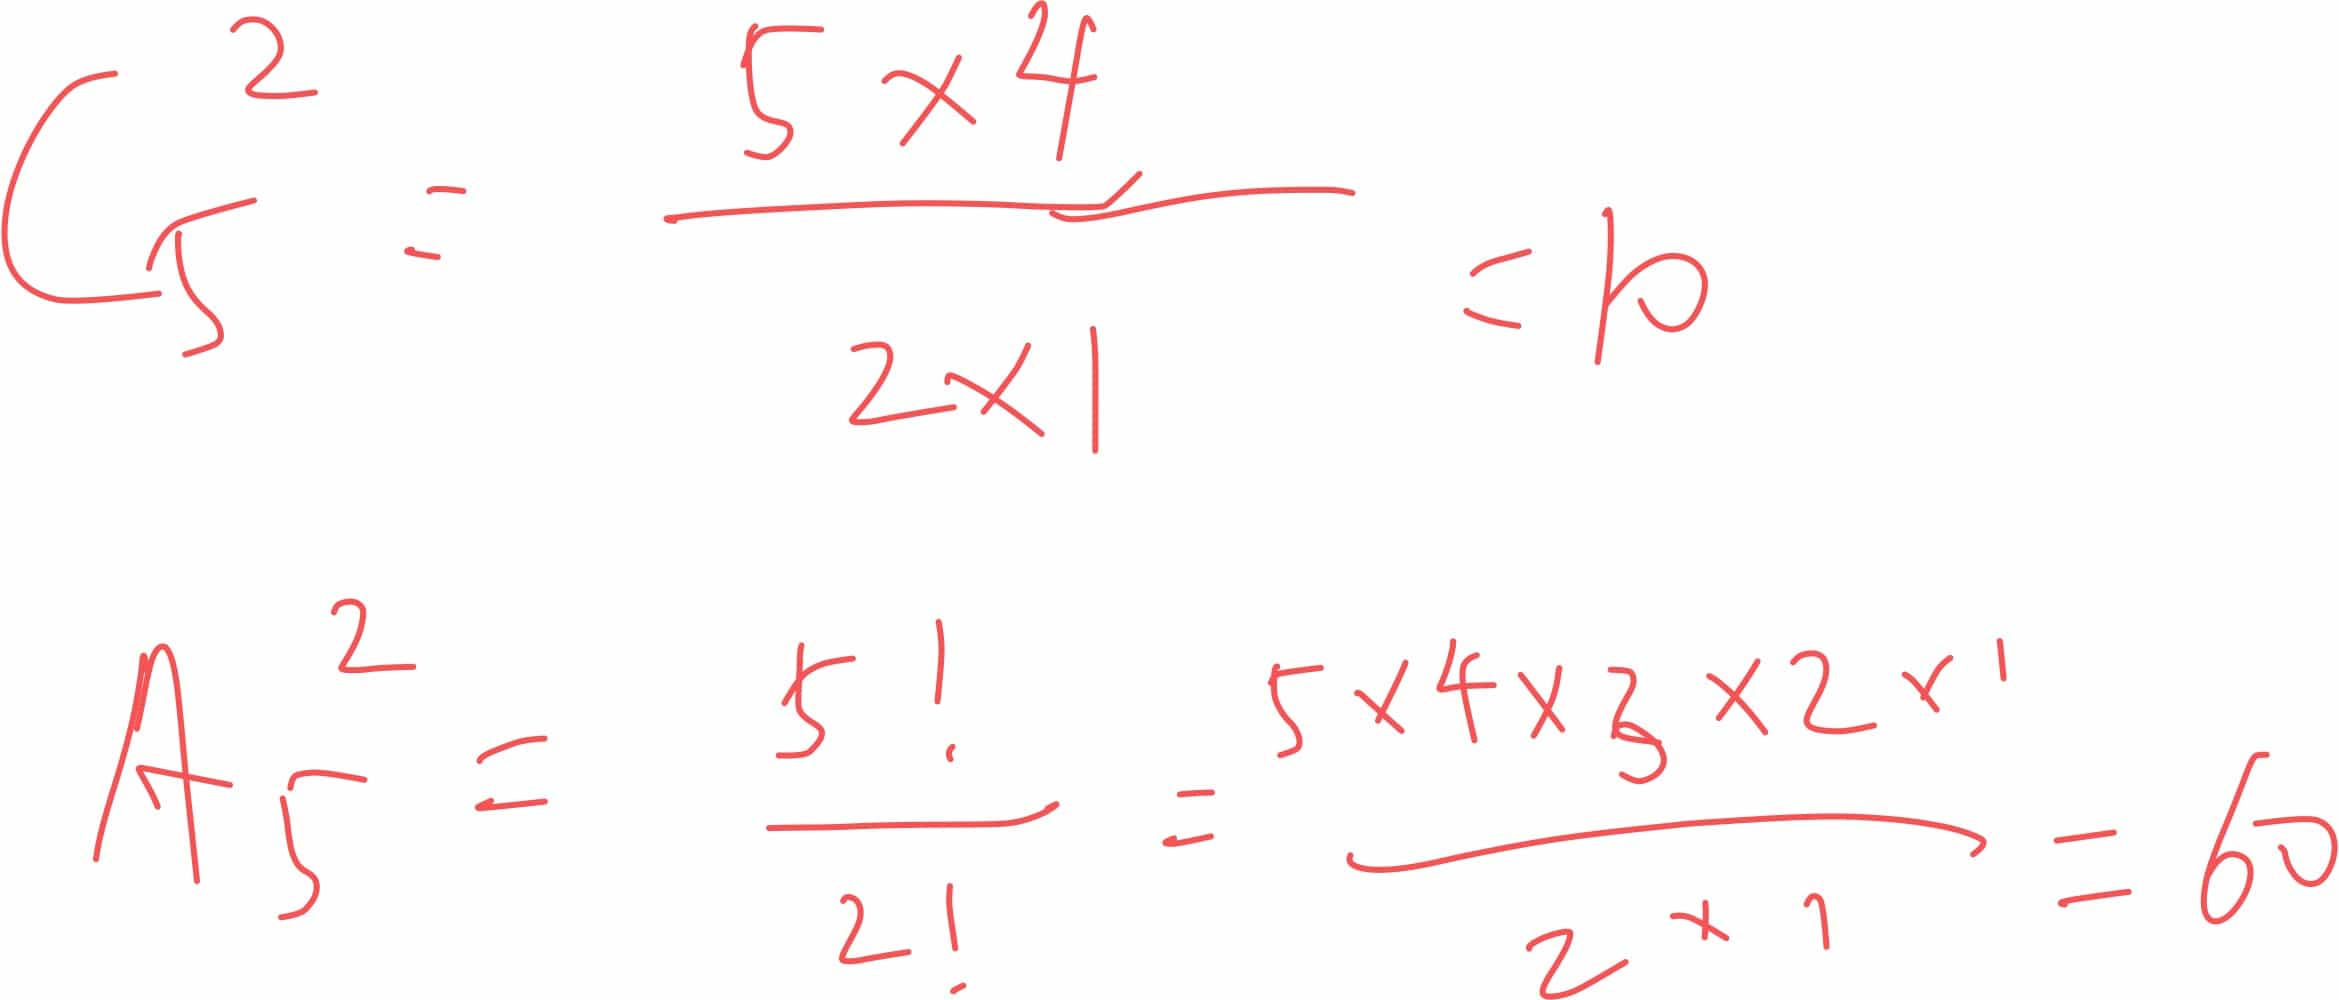 C₅² = (5×4)/(2×1) = 10
A₅² = 5!/2! = (5×4×3×2×1)/(2×1) = 60